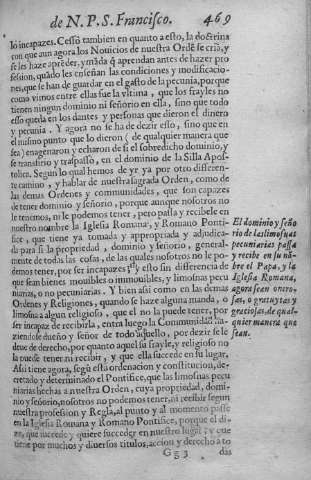 de N. P. S. Francisco. 469
lo incapazes. Cessò tambien en quanto a esto, la doctrina
con que aun agora los Novicios de nuestra Ordẽ se criã, y
se les haze aprẽder, y mãda q̃ aprendan antes de hazer pro
fession, quãdo les enseñan las condiciones y modificacio-
nes, que se han de guardar en el gasto de la pecunia, porque
como vimos entre ellas fue la vltima, que los frayles no
tienen ningun dominio ni señorio en ella, sino que todo
esso queda en los dantes y personas que dieron el dinero
y pecunia. Y agora no se ha de dezir esso, sino que en
el mismo punto que lo dieron (de qualquier manera que
sea) enagenaron y echaron de si el sobredicho dominio, y
se transfirio y traspassò, en el dominio de la Silla Apos-
tolica. Segun lo qual hemos de yr ya por otro differen-
te camino, y hablar de nuestra sagrada Orden, como de
las demas Ordenes y communidades, que son capazes
de tener dominio y señorio, porque aunque nosotros no
le tenemos, ni le podemos tener, pero passa y recibele en
nuestro nombre la Iglesia Romana, y Romano Pontifi-
ce, que tiene ya tomada y appropriada y adjudica-
da para si la propriedad, dominio y señorio, general-
mente de todas las cosas, de las quales nosotros no le po-
demos tener, por ser incapazes; esto sin differencia de
que sean bienes mouibles o inmouibles, y limosnas pecu
niarias, o no pecuniarias. Y bien assi como en las demas
Ordenes y Religiones, quando se haze alguna manda, o
limosna a algun religioso, que el no la puede tener, por
ser incapaz de recibirla, entra luego la Communidad ha-
ziendose dueño y señor de todo aquello, por dezir se le
deue de derecho, por quanto aquel su frayle, y religioso no
la puede tener ni recibir, y que ella succede en su lugar.
Assi tiene agora, segũ esta ordenacion y constitucion, de-
cretado y determinado el Pontifice, que las limosnas pecu
niarias hechas a nuestra Orden, cuya propriedad, domi-
nio y señorio, nosotros no podemos tener, ni recibir segun
nuestra profession y Regla, al punto y al momento passe
en la Iglesia Romana y Romano Pontifice, porque el di-
ze, que succede y quiere succeder en nuestro lugar, y que
tiene por muchos y diuersos titulos, accion y derecho a to
Gg 3 das
El dominio y seño
rio de las limosnas
pecuniarias passa
y recibe en su nõ-
bre el Papa, y la
Iglesia Romana,
agora sean onero-
sas, o gratuytas y
graciosas, de qual-
quier manera que
sean.